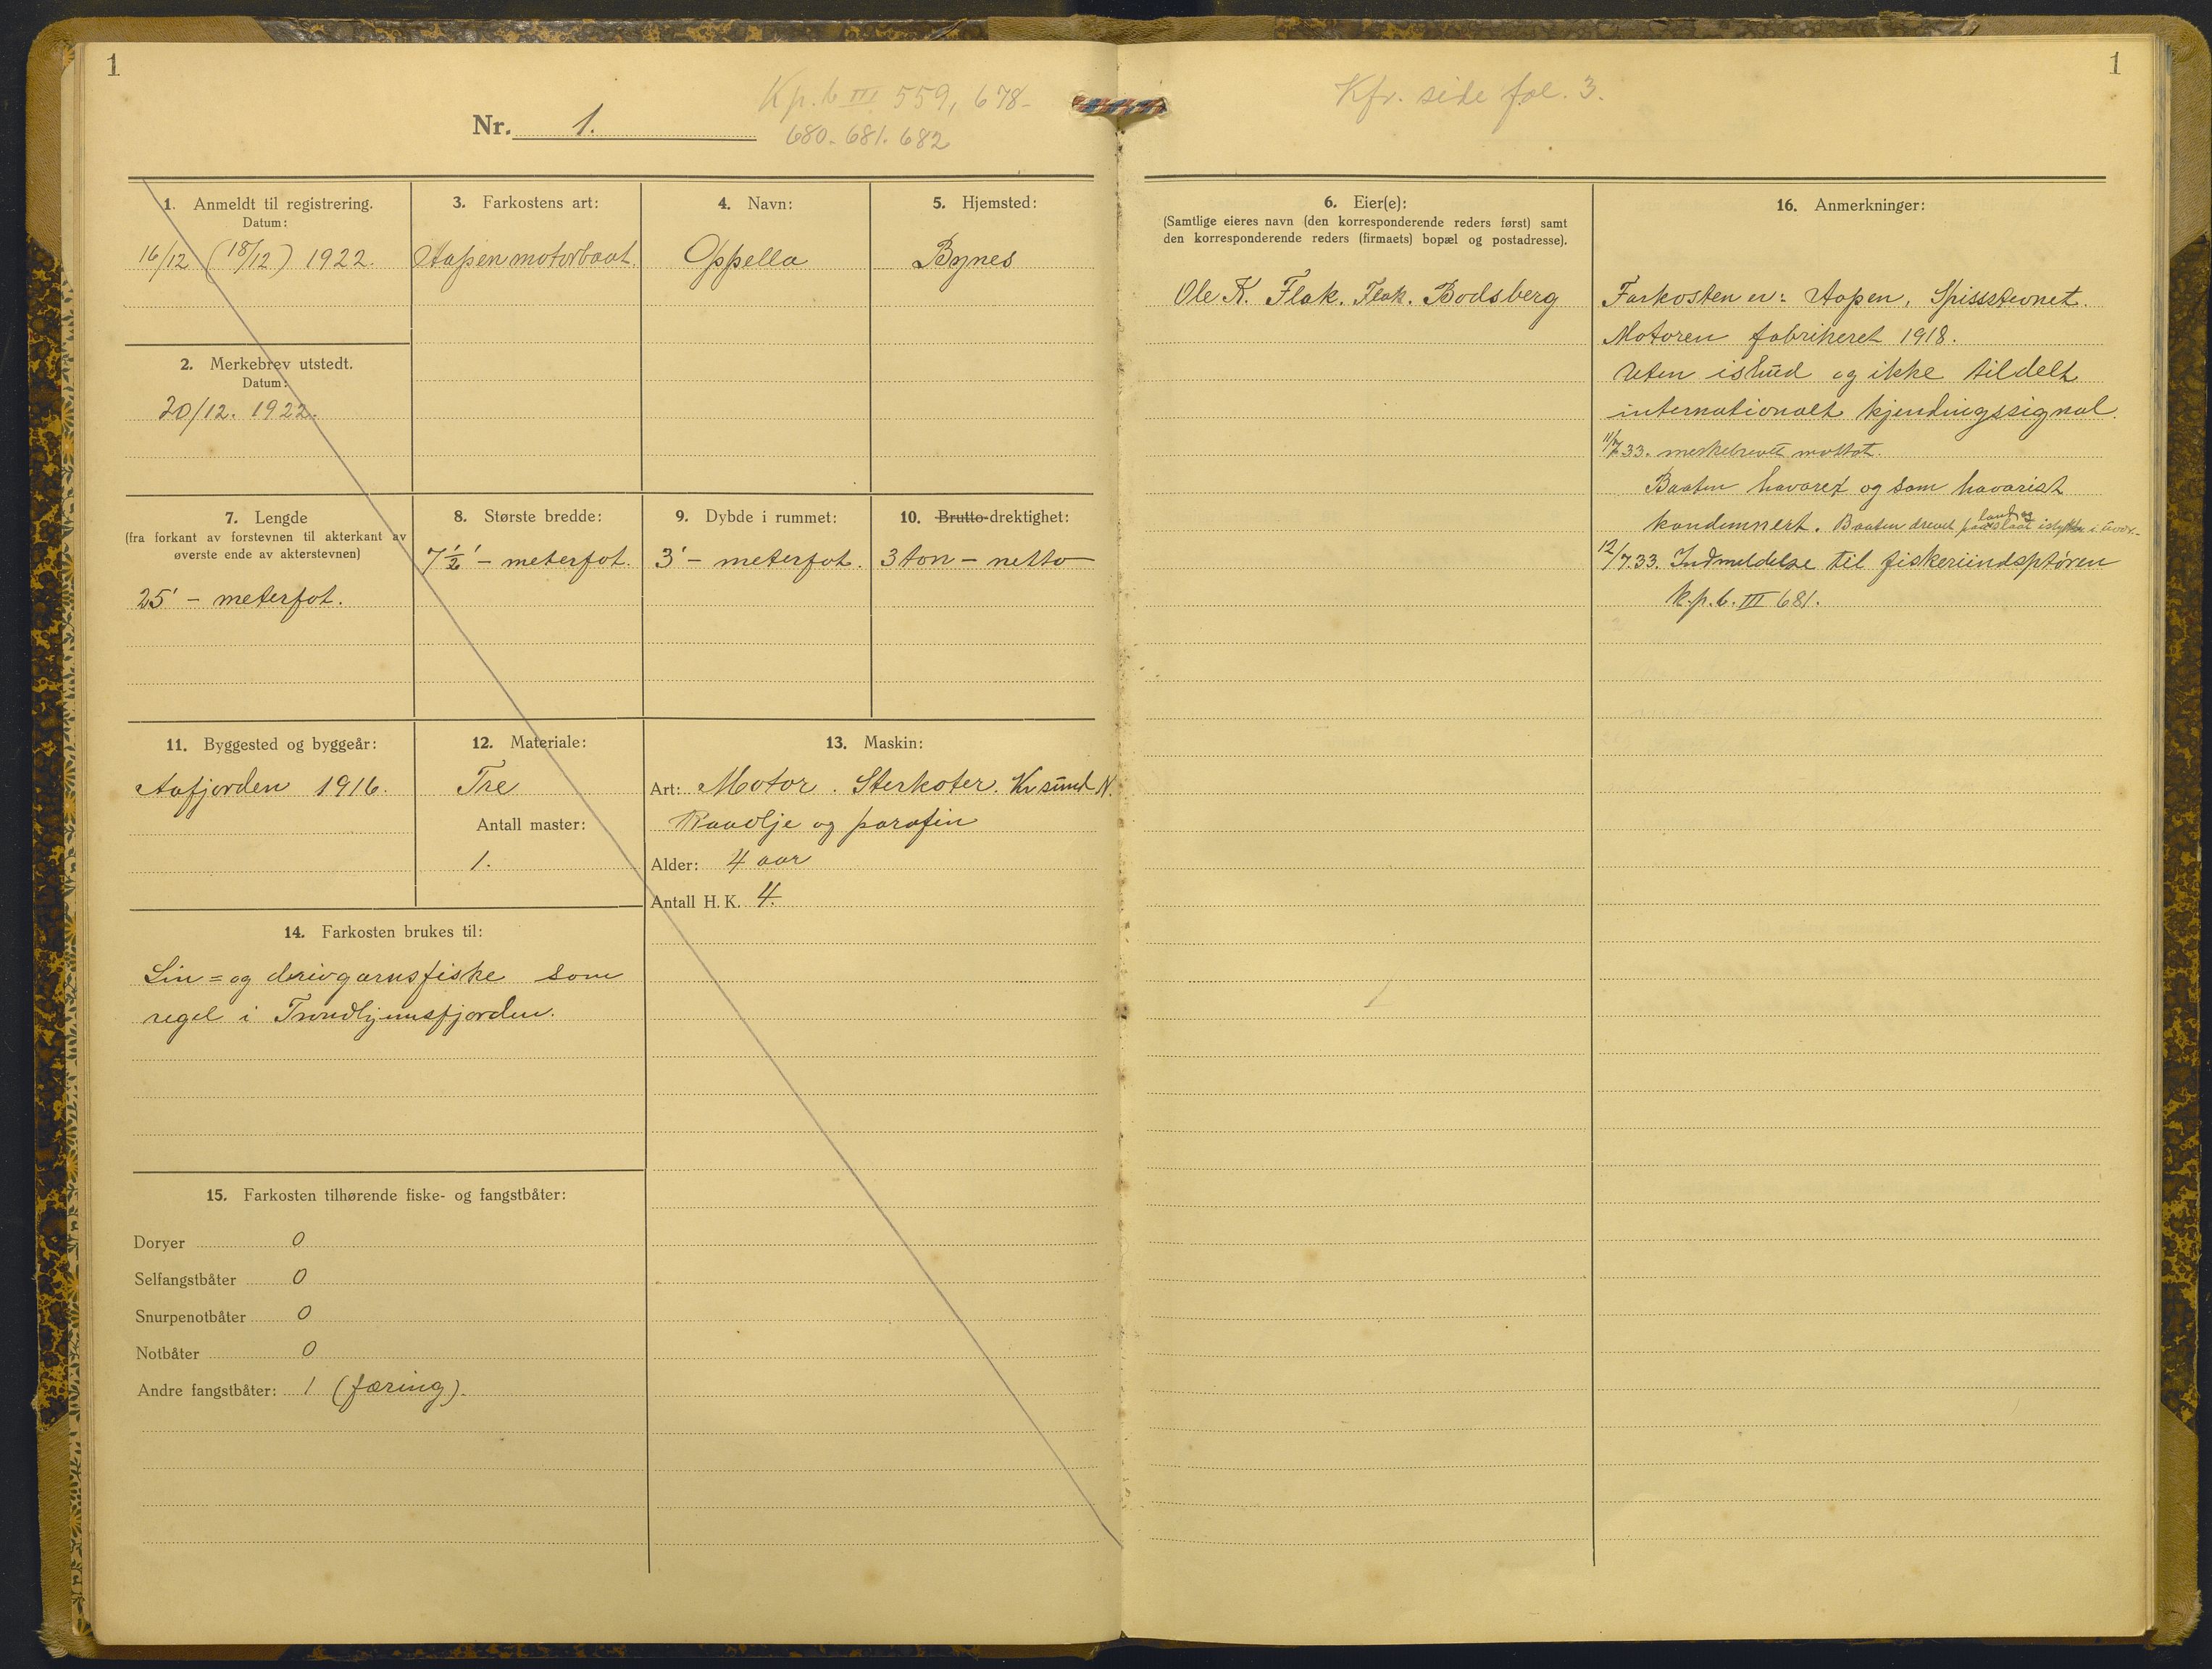 1
Kp. b III 559, 678-
Nr. 1.
680. 681. 682
1. Anmeldt til registrering.
Datum:
16/12 (18/12) 1922.
2. Merkebrev utstedt.
Datum:
20/12. 1922.
3. Farkostens art:
Aapen motorbaat.
4. Navn:
Oppella
5. Hjemsted:
Bynes
7. Lengde
(fra forkant av forstevnen til akterkant av
øverste ende av akterstevnen)
25' - meterfot.
8. Største bredde:
7½' - meterfot.
9. Dybde i rummet:
3' - meterfot.
10. Brutto-drektighet:
3 ton - netto
11. Byggested og byggeår:
Aafjorden 1916.
12. Materiale:
Tre
Antall master:
1.
13. Maskin:
Art: Motor. Sterkoter. Kr sund N.
Raaolje og parafin
Alder: 4 aar
Antall H. K. 4.
14. Farkosten brukes til:
Lin = og drivgarnsfiske som
regel i Trondhjemsfjorden.
15. Farkosten tilhørende fiske- og fangstbåter:
Doryer 0
Selfangstbåter 0
Snurpenotbåter 0
Notbåter 0
Andre fangstbåter: 1 (færing).
1
Kfr. side fol. 3.
6. Eier(e):
(Samtlige eieres navn (den korresponderende reders først) samt
den korresponderende reders (firmaets) bopæl og postadresse).
Ole K. Flak. Flak. Bodsberg
16. Anmerkninger:
Farkosten er: Aapen, Spissstevnet.
Motoren fabrikeret 1918.
Uten ishud og ikke tildelt
internationalt kjendingssignal.
11/7 33. merkebrevet mottat.
Baaten havaret og som havarist
kondemnert. Baaten drevet paa land og slaat istykker i
12/7.33. Indmeldelse til fiskeriindsptøren
k.p.b. III 681.